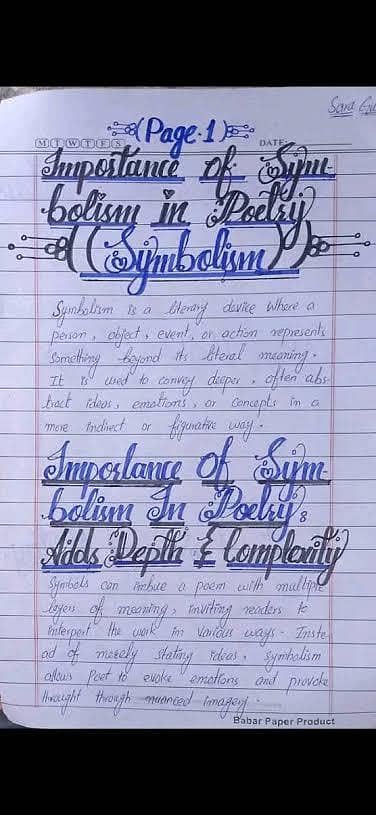 Sara
(Page.1)
M T W T F S
DATE:
Importance of Sym-
bolism in Poetry
((Symbolism))
Symbolism is a literary device where a
person, object, event, or action represents
Something beyond its literal meaning.
It is used to convey deeper, often abs-
tract ideas, emotions, or Concepts in a
more indirect or figurative way.
Importance Of Sym-
bolism In Poetry:
Adds Depth & Complexity
Symbols can imbue a poem with multiple
layers of meaning, inviting readers to
interpert the work in Various ways. Inste-
ad of merely stating ideas, symbolism
allows Poet to evoke emotions and provoke
throught through nuanced imagery.
Babar Paper Product